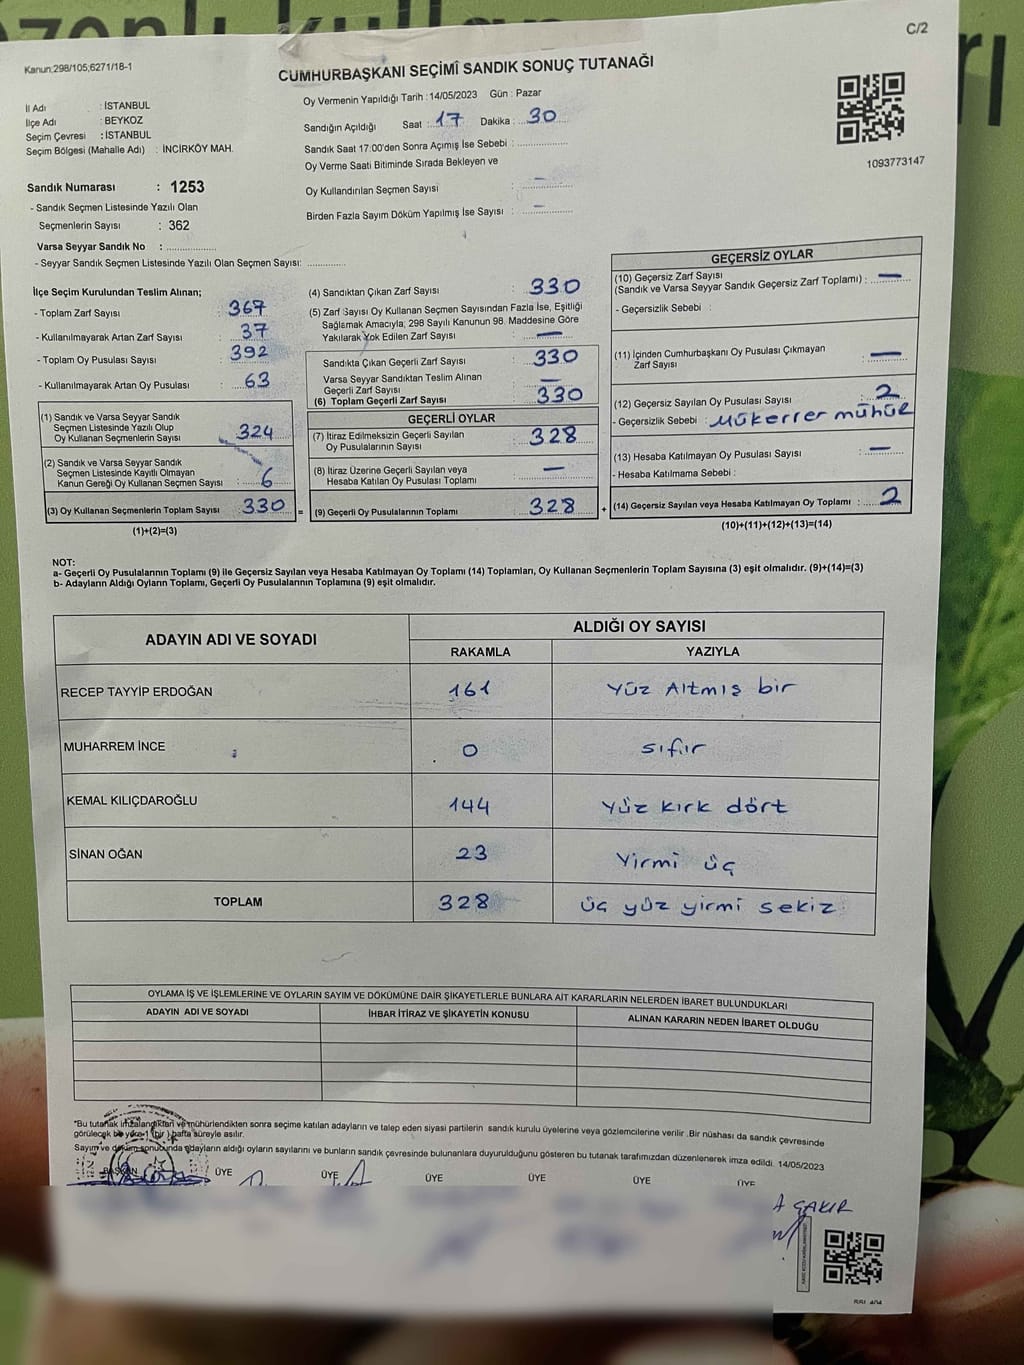 C/2
Kanun;298/105;6271/18-1
CUMHURBAŞKANI SEÇİMİ SANDIK SONUÇ TUTANAĞI
İl Adı : İSTANBUL
İlçe Adı : BEYKOZ
Seçim Çevresi : İSTANBUL
Seçim Bölgesi (Mahalle Adı) : İNCİRKÖY MAH.
Sandık Numarası : 1253
- Sandık Seçmen Listesinde Yazılı Olan
Seçmenlerin Sayısı : 362
Varsa Seyyar Sandık No : ..................
- Seyyar Sandık Seçmen Listesinde Yazılı Olan Seçmen Sayısı: ..............
Oy Vermenin Yapıldığı Tarih : 14/05/2023 Gün : Pazar
Sandığın Açıldığı Saat : 17 Dakika : 30
Sandık Saat 17:00'den Sonra Açımış İse Sebebi : ......................
Oy Verme Saati Bitiminde Sırada Bekleyen ve
Oy Kullandırılan Seçmen Sayısı : –
Birden Fazla Sayım Döküm Yapılmış İse Sayısı : –
1093773147
İlçe Seçim Kurulundan Teslim Alınan;
- Toplam Zarf Sayısı : 367
- Kullanılmayarak Artan Zarf Sayısı : 37
- Toplam Oy Pusulası Sayısı : 392
- Kullanılmayarak Artan Oy Pusulası : 63
(1) Sandık ve Varsa Seyyar Sandık
Seçmen Listesinde Yazılı Olup
Oy Kullanan Seçmenlerin Sayısı : 324
(2) Sandık ve Varsa Seyyar Sandık
Seçmen Listesinde Kayıtlı Olmayan
Kanun Gereği Oy Kullanan Seçmen Sayısı : 6
(3) Oy Kullanan Seçmenlerin Toplam Sayısı : 330 =
(1)+(2)=(3)
(4) Sandıktan Çıkan Zarf Sayısı : 330
(5) Zarf Sayısı Oy Kullanan Seçmen Sayısından Fazla İse, Eşitliği
Sağlamak Amacıyla, 298 Sayılı Kanunun 98. Maddesine Göre
Yakılarak Yok Edilen Zarf Sayısı : –
Sandıkta Çıkan Geçerli Zarf Sayısı : 330
Varsa Seyyar Sandıktan Teslim Alınan
Geçerli Zarf Sayısı : –
(6) Toplam Geçerli Zarf Sayısı : 330
GEÇERLİ OYLAR
(7) İtiraz Edilmeksizin Geçerli Sayılan
Oy Pusulalarının Sayısı : 328
(8) İtiraz Üzerine Geçerli Sayılan veya
Hesaba Katılan Oy Pusulası Toplamı : –
(9) Geçerli Oy Pusulalarının Toplamı : 328 +
GEÇERSİZ OYLAR
(10) Geçersiz Zarf Sayısı
(Sandık ve Varsa Seyyar Sandık Geçersiz Zarf Toplamı) : –
- Geçersizlik Sebebi :
(11) İçinden Cumhurbaşkanı Oy Pusulası Çıkmayan
Zarf Sayısı : –
(12) Geçersiz Sayılan Oy Pusulası Sayısı : 2
- Geçersizlik Sebebi : Mükerrer mühür
(13) Hesaba Katılmayan Oy Pusulası Sayısı : –
- Hesaba Katılmama Sebebi :
(14) Geçersiz Sayılan veya Hesaba Katılmayan Oy Toplamı : 2
(10)+(11)+(12)+(13)=(14)
NOT:
a- Geçerli Oy Pusulalarının Toplamı (9) ile Geçersiz Sayılan veya Hesaba Katılmayan Oy Toplamı (14) Toplamları, Oy Kullanan Seçmenlerin Toplam Sayısına (3) eşit olmalıdır. (9)+(14)=(3)
b- Adayların Aldığı Oyların Toplamı, Geçerli Oy Pusulalarının Toplamına (9) eşit olmalıdır.
ADAYIN ADI VE SOYADI ALDIĞI OY SAYISI
RAKAMLA YAZIYLA
RECEP TAYYİP ERDOĞAN 161 Yüz Altmış bir
MUHARREM İNCE 0 sıfır
KEMAL KILIÇDAROĞLU 144 Yüz kırk dört
SİNAN OĞAN 23 Yirmi üç
TOPLAM 328 üç yüz yirmi sekiz
OYLAMA İŞ VE İŞLEMLERİNE VE OYLARIN SAYIM VE DÖKÜMÜNE DAİR ŞİKAYETLERLE BUNLARA AİT KARARLARIN NELERDEN İBARET BULUNDUKLARI
ADAYIN ADI VE SOYADI İHBAR İTİRAZ VE ŞİKAYETİN KONUSU ALINAN KARARIN NEDEN İBARET OLDUĞU
*Bu tutanak imzalandıktan ve mühürlendikten sonra seçime katılan adayların ve talep eden siyasi partilerin sandık kurulu üyelerine veya gözlemcilerine verilir .Bir nüshası da sandık çevresinde
görülecek bir yere 1 (bir ) hafta süreyle asılır.
Sayım ve döküm sonucunda adayların aldığı oyların sayılarını ve bunların sandık çevresinde bulunanlara duyurulduğunu gösteren bu tutanak tarafımızdan düzenlenerek imza edildi. 14/05/2023
BAŞKAN ÜYE ÜYE ÜYE ÜYE ÜYE ÜYE
A ÇAKIR